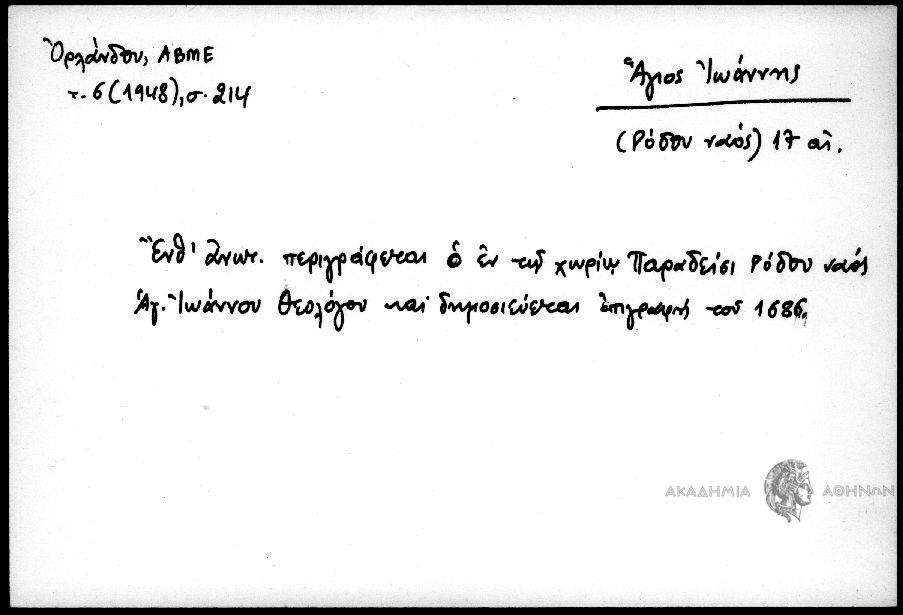 Ὀρλάνδου, ΑΒΜΕ
τ. 6 (1948), σ. 214
Ἅγιος Ἰωάννης
(Ρόδου ναός) 17 αἰ.
Ἔνθ' ἄνωτ. περιγράφεται ὁ ἐν τῷ χωρίῳ Παραδείσι Ρόδου ναός
Ἁγ. Ἰωάννου Θεολόγου καὶ δημοσιεύεται ἐπιγραφή τοῦ 1686.
ΑΚΑΔΗΜΙΑ ΑΘΗΝΩΝ